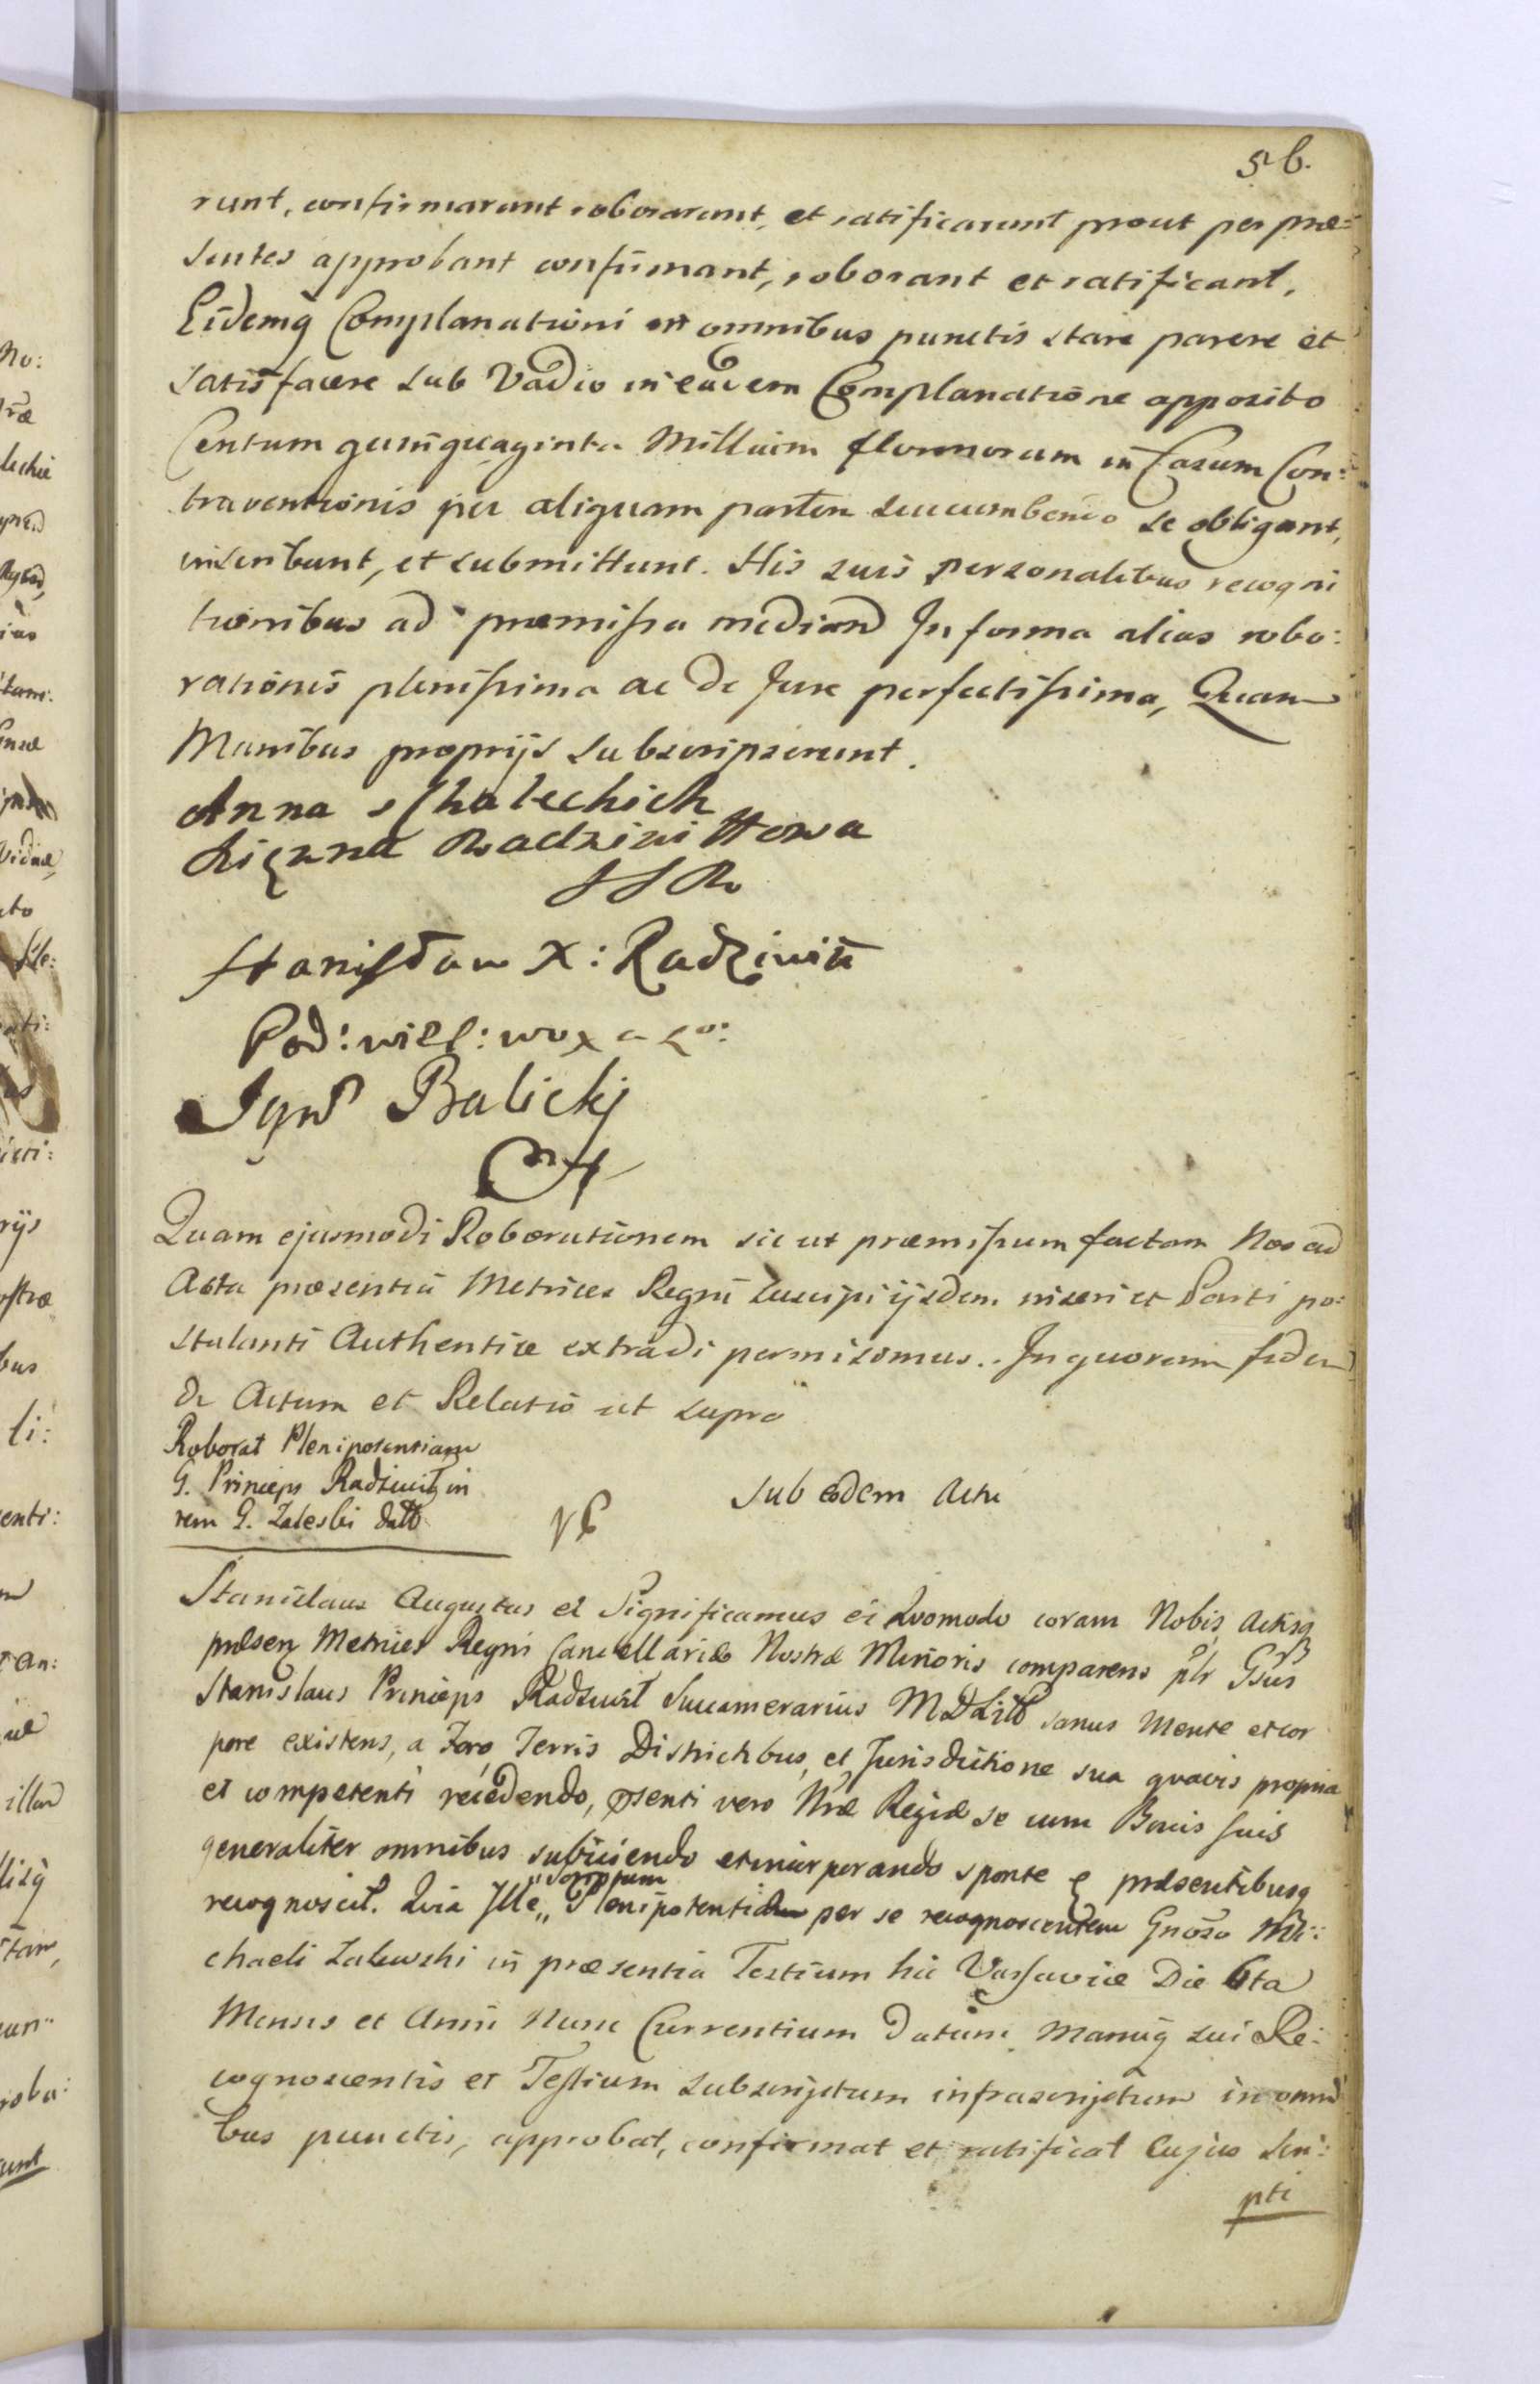 56.
runt, confirmarunt roborarunt, et ratificarunt prout per præ=
sentes approbant confirmant, roborant et ratificant,
Eidemq Complanationi in omnibus punctis stare parere et
satisfacere sub Vadio in eadem Complanatione apposito
Centum quinquaginta Millium florenorum in Casum Con:
traventionis per aliquam partem succumbendo se obligant,
inscribunt, et submittunt. His suis personalibus recogni
tionibus ad præmissa mediand In forma alias robo:
rationis plenissima ac de Jure perfectissima, Quam
Manibus proprijs subscripserunt.
Anna
Radziwiłłowa
Stanisław X: Radziwiłł
Pod: will: wo x
Balickj
Quam ejusmodi Roborationem sic ut præmissum factam Nos ad
Acta præsentia Metrices Regni suscipi ijsdem inseri et Parti po:
stulanti Authentice extradi permisimus. In quorum fidem
Actum et Relatio ut supra
Roborat Plenipotentiam
G. Princeps Radziwił in
rem G. Zaleski
sub eodem Actu
Stanislaus Augustus et Significamus Quomodo coram Nobis Actisq
præsen Metrices Regni Cancellariæ Nostræ Minoris comparens plr Gsus
Stanislaus Princeps Radziwił Succamerarius M D Litt sanus Mente et cor
pore existens, a Foro Terris Districtibus, et Jurisdictione sua quavis propria
et competenti recedendo, psenti vero Nræ Regiæ se cum Bonis suis
generaliter omnibus subijciendo et incorporando sponte præsentibusq
recognoscit. Quia Ille scriptum Plenipotentiæ per se recognoscentem Gnoso Mi:
chaeli Zalewski in præsentia Testium hic Varsaviæ Die 6ta
Mensis et Anni Nunc Currentium Datum Manuq sui Re:
cognoscentis et Testium subscriptum infrascriptum in omni
bus punctis, approbat, confirmat et ratificat Cujus scri:
pti